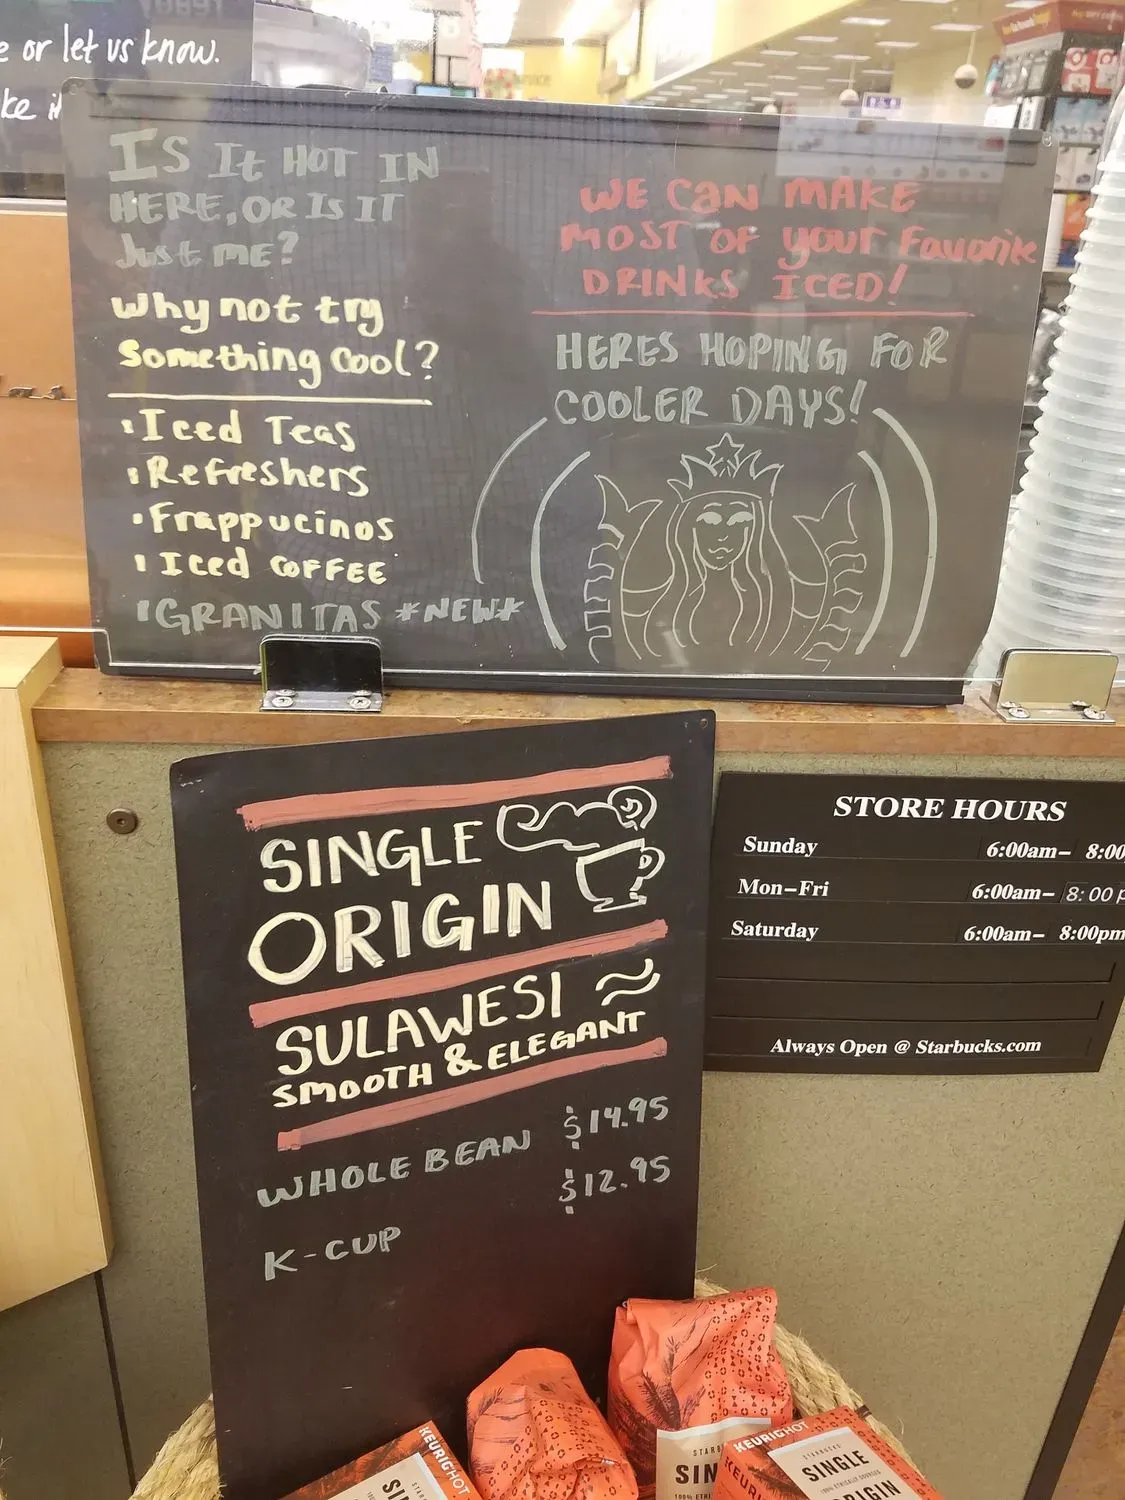 e or let us know.
IS It HOT IN
HERE, OR IS IT
Just ME?
Why not try
Something Cool?
Iced Teas
Refreshers
Frappucinos
Iced COFFEE
GRANITAS *NEW*
WE CAN MAKE
MOST OF your Favorite
DRINKS ICED!
HERES HOPING FOR
COOLER DAYS!
SINGLE
ORIGIN
SULAWESI
SMOOTH & ELEGANT
WHOLE BEAN $14.95
$12.95
K-CUP
STORE HOURS
Sunday 6:00am– 8:00
Mon–Fri 6:00am– 8:00 p
Saturday 6:00am– 8:00pm
Always Open @ Starbucks.com
KEURIG HOT
SIN
KEURIG HOT
SINGLE
ORIGIN